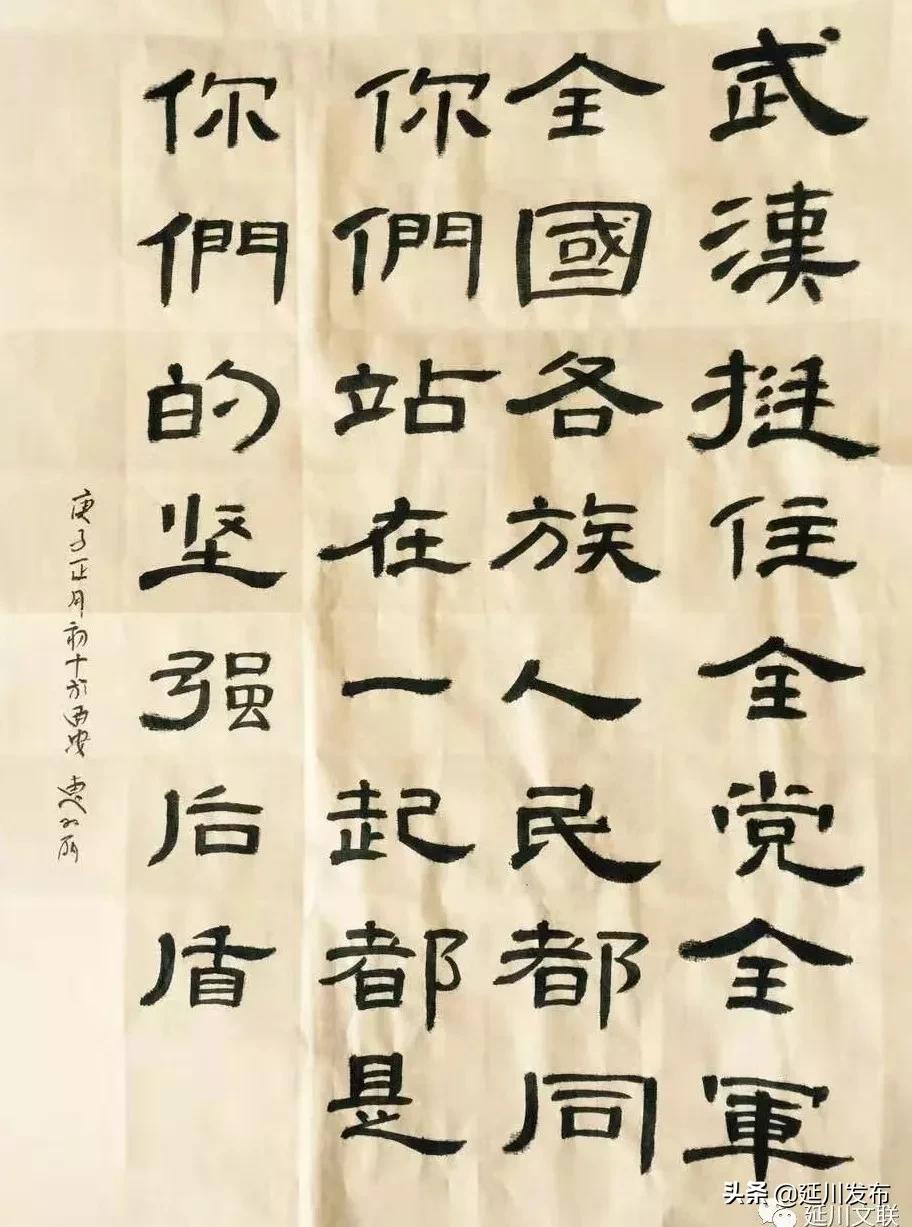 武漢挺住全党全軍
全國各族人民都同
你們站在一起都是
你們的坚强后盾
庚子正月初十於西安 惠
头条 @延川发布
延川文联